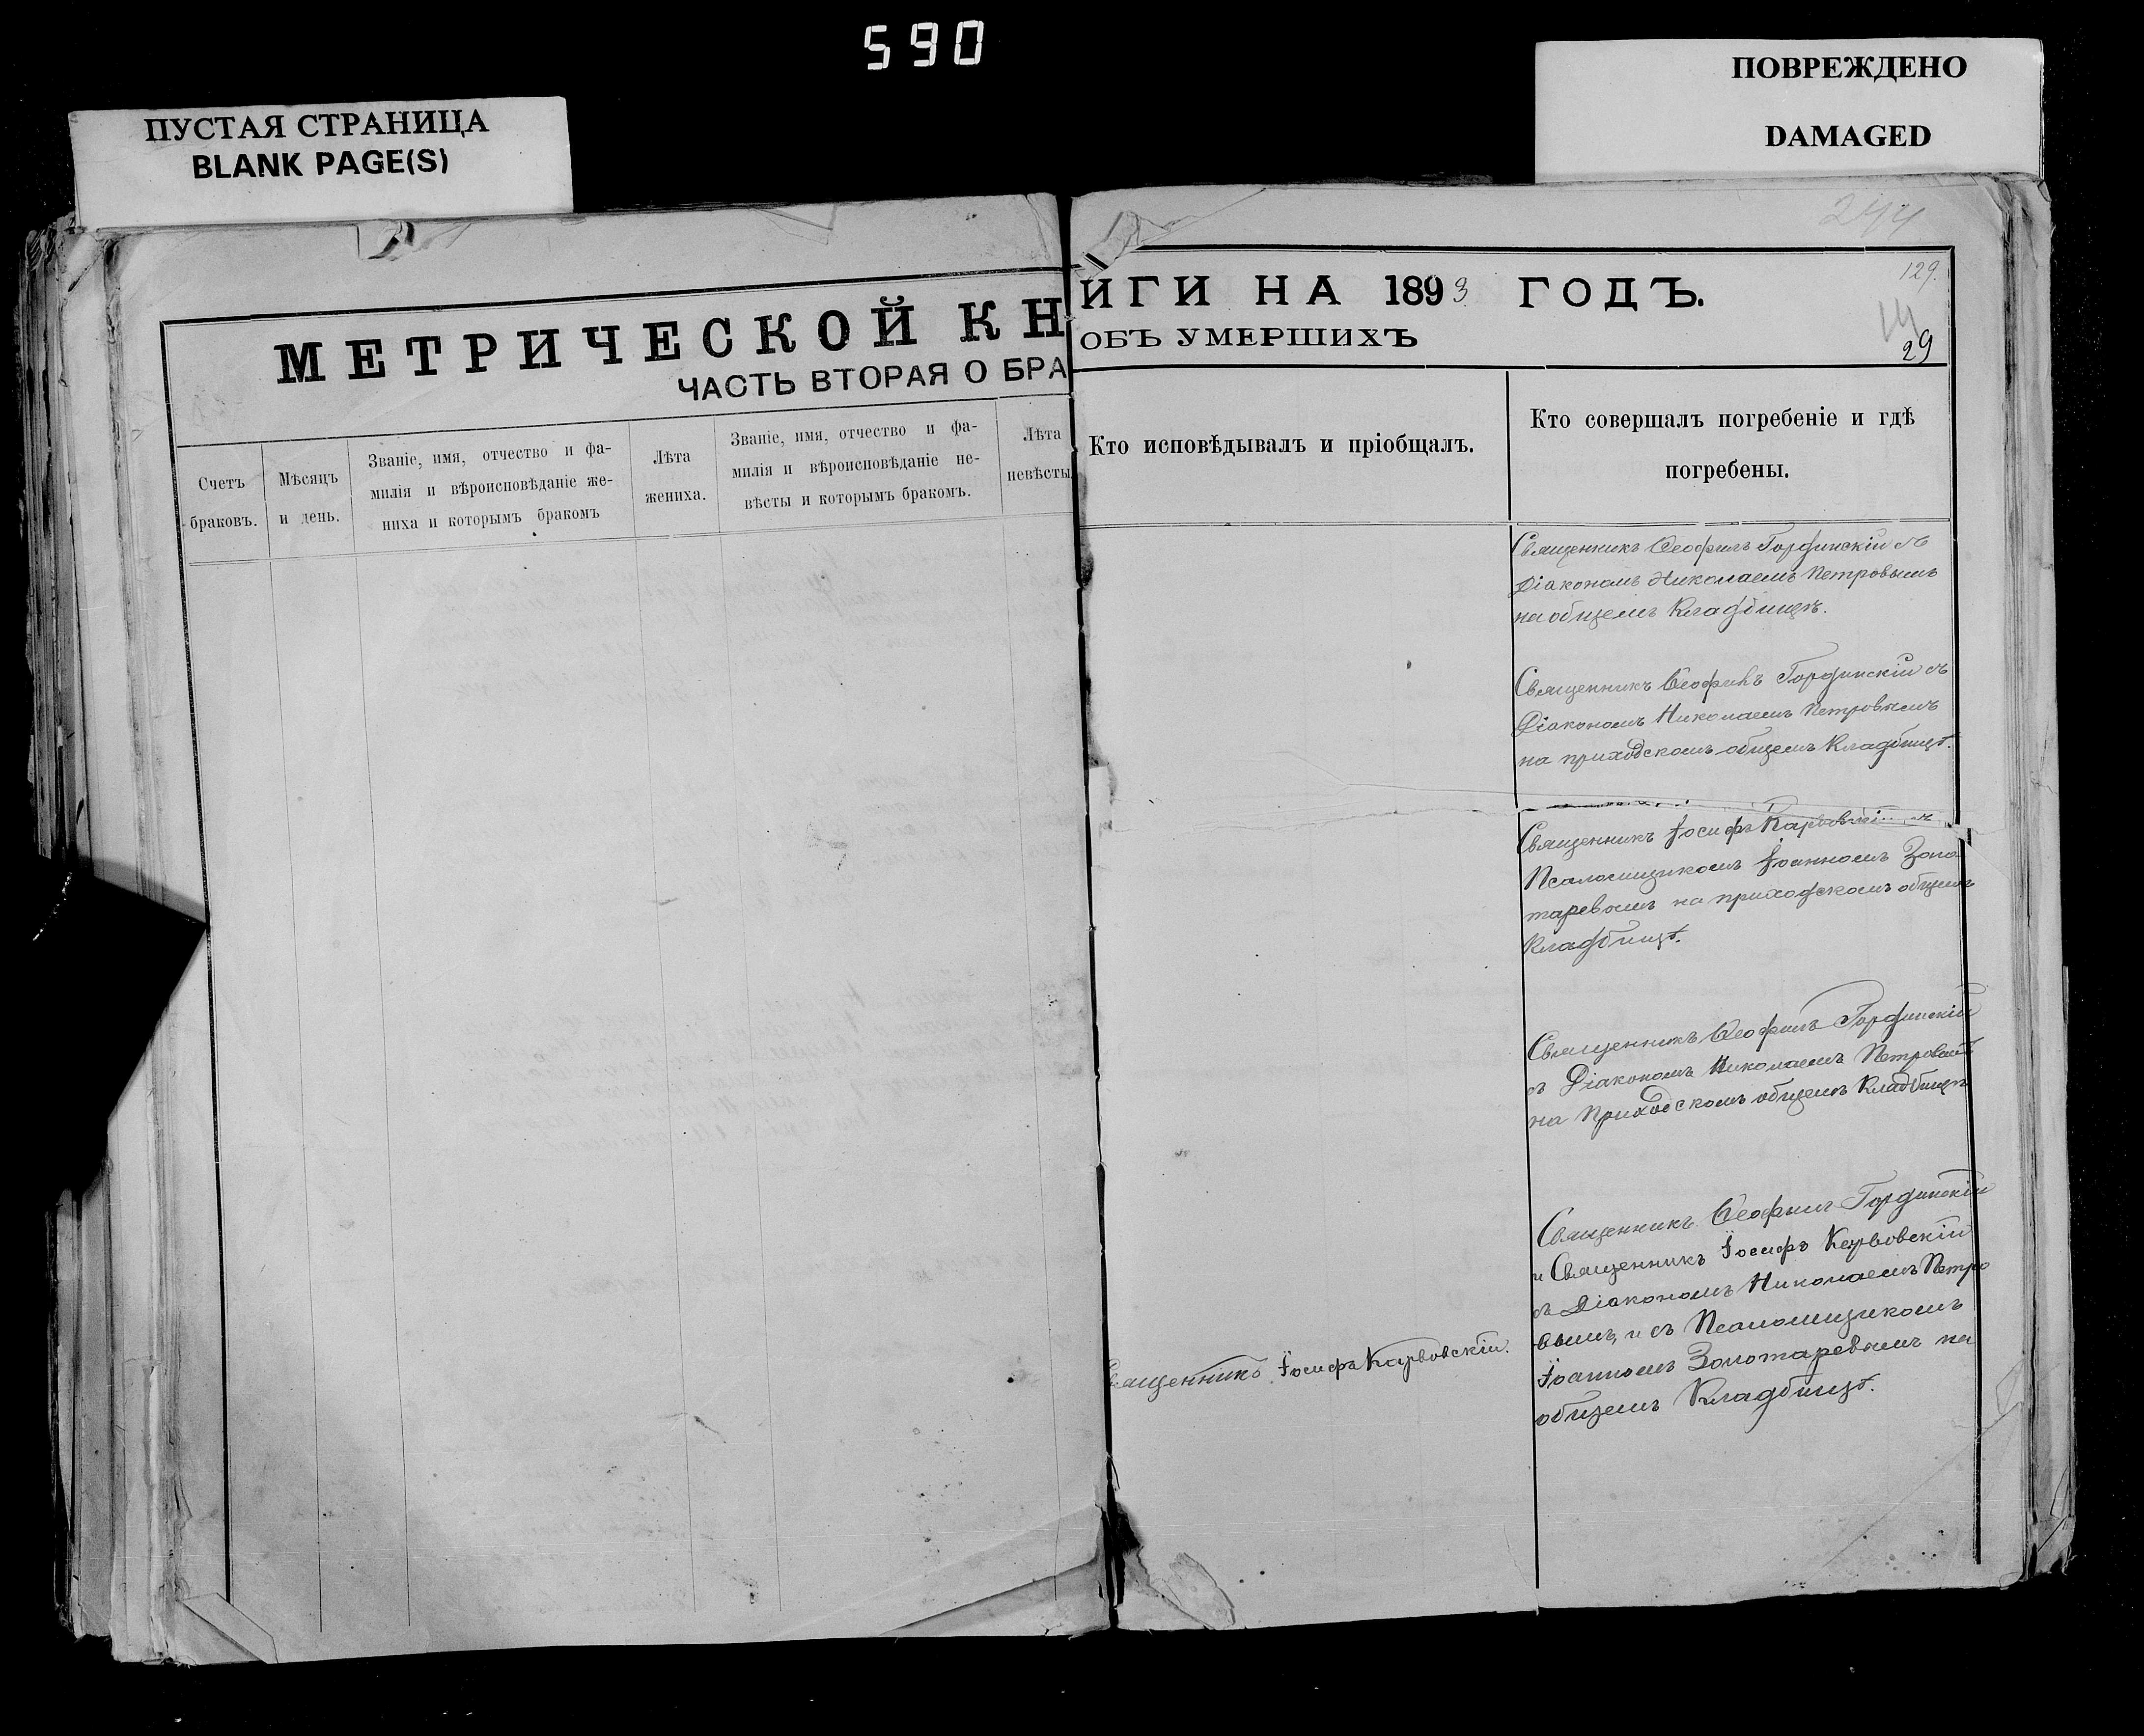 590
ПУСТАЯ СТРАНИЦА
BLANK PAGE(S)
ПОВРЕЖДЕНО
DAMAGED
МЕТРИЧЕСКОЙ КН
ЧАСТЬ ВТОРАЯ О БРА
Счетъ
браковъ.
Мѣсяцъ
и день.
Званіе, имя, отчество и фа-
милія и вѣроисповѣданіе же-
ниха и которымъ бракомъ
Лѣта
жениха.
Званіе, имя, отчество и фа-
милія и вѣроисповѣданіе не-
вѣсты и которымъ бракомъ.
Лѣта
невѣсты
244
129.
ИГИ НА 1893 ГОДЪ.
ОБЪ УМЕРШИХЪ
29
Кто исповѣдывалъ и пріобщалъ.
Кто совершалъ погребеніе и гдѣ
погребены.
Священникъ Ѳеофилъ Гордински съ
Діакономъ Николаемъ Петровымъ
на общемъ Кладбищѣ.
Священникъ Ѳеофилъ Гординскій съ
Діакономъ Николаемъ Петровымъ
на приходскомъ общемъ Кладбищѣ.
Священникъ Іосифъ
Псаломщикомъ Іоанномъ Золо
таревымъ на приходскомъ общемъ
Кладбищѣ.
Священникъ Ѳеофилъ Гординскій
съ Діакономъ Николаемъ Петровымъ
на Приходскомъ общемъ Кладбищѣ
Священникъ Ѳеофилъ Гординскій
и Священникъ Іосифъ Карвовскій
съ Діакономъ Николаемъ Петро
вымъ, и съ Псаломщикомъ
Іоанномъ Золотаревымъ на
общемъ Кладбищѣ.
вященникъ Іосифъ Карвовскій.